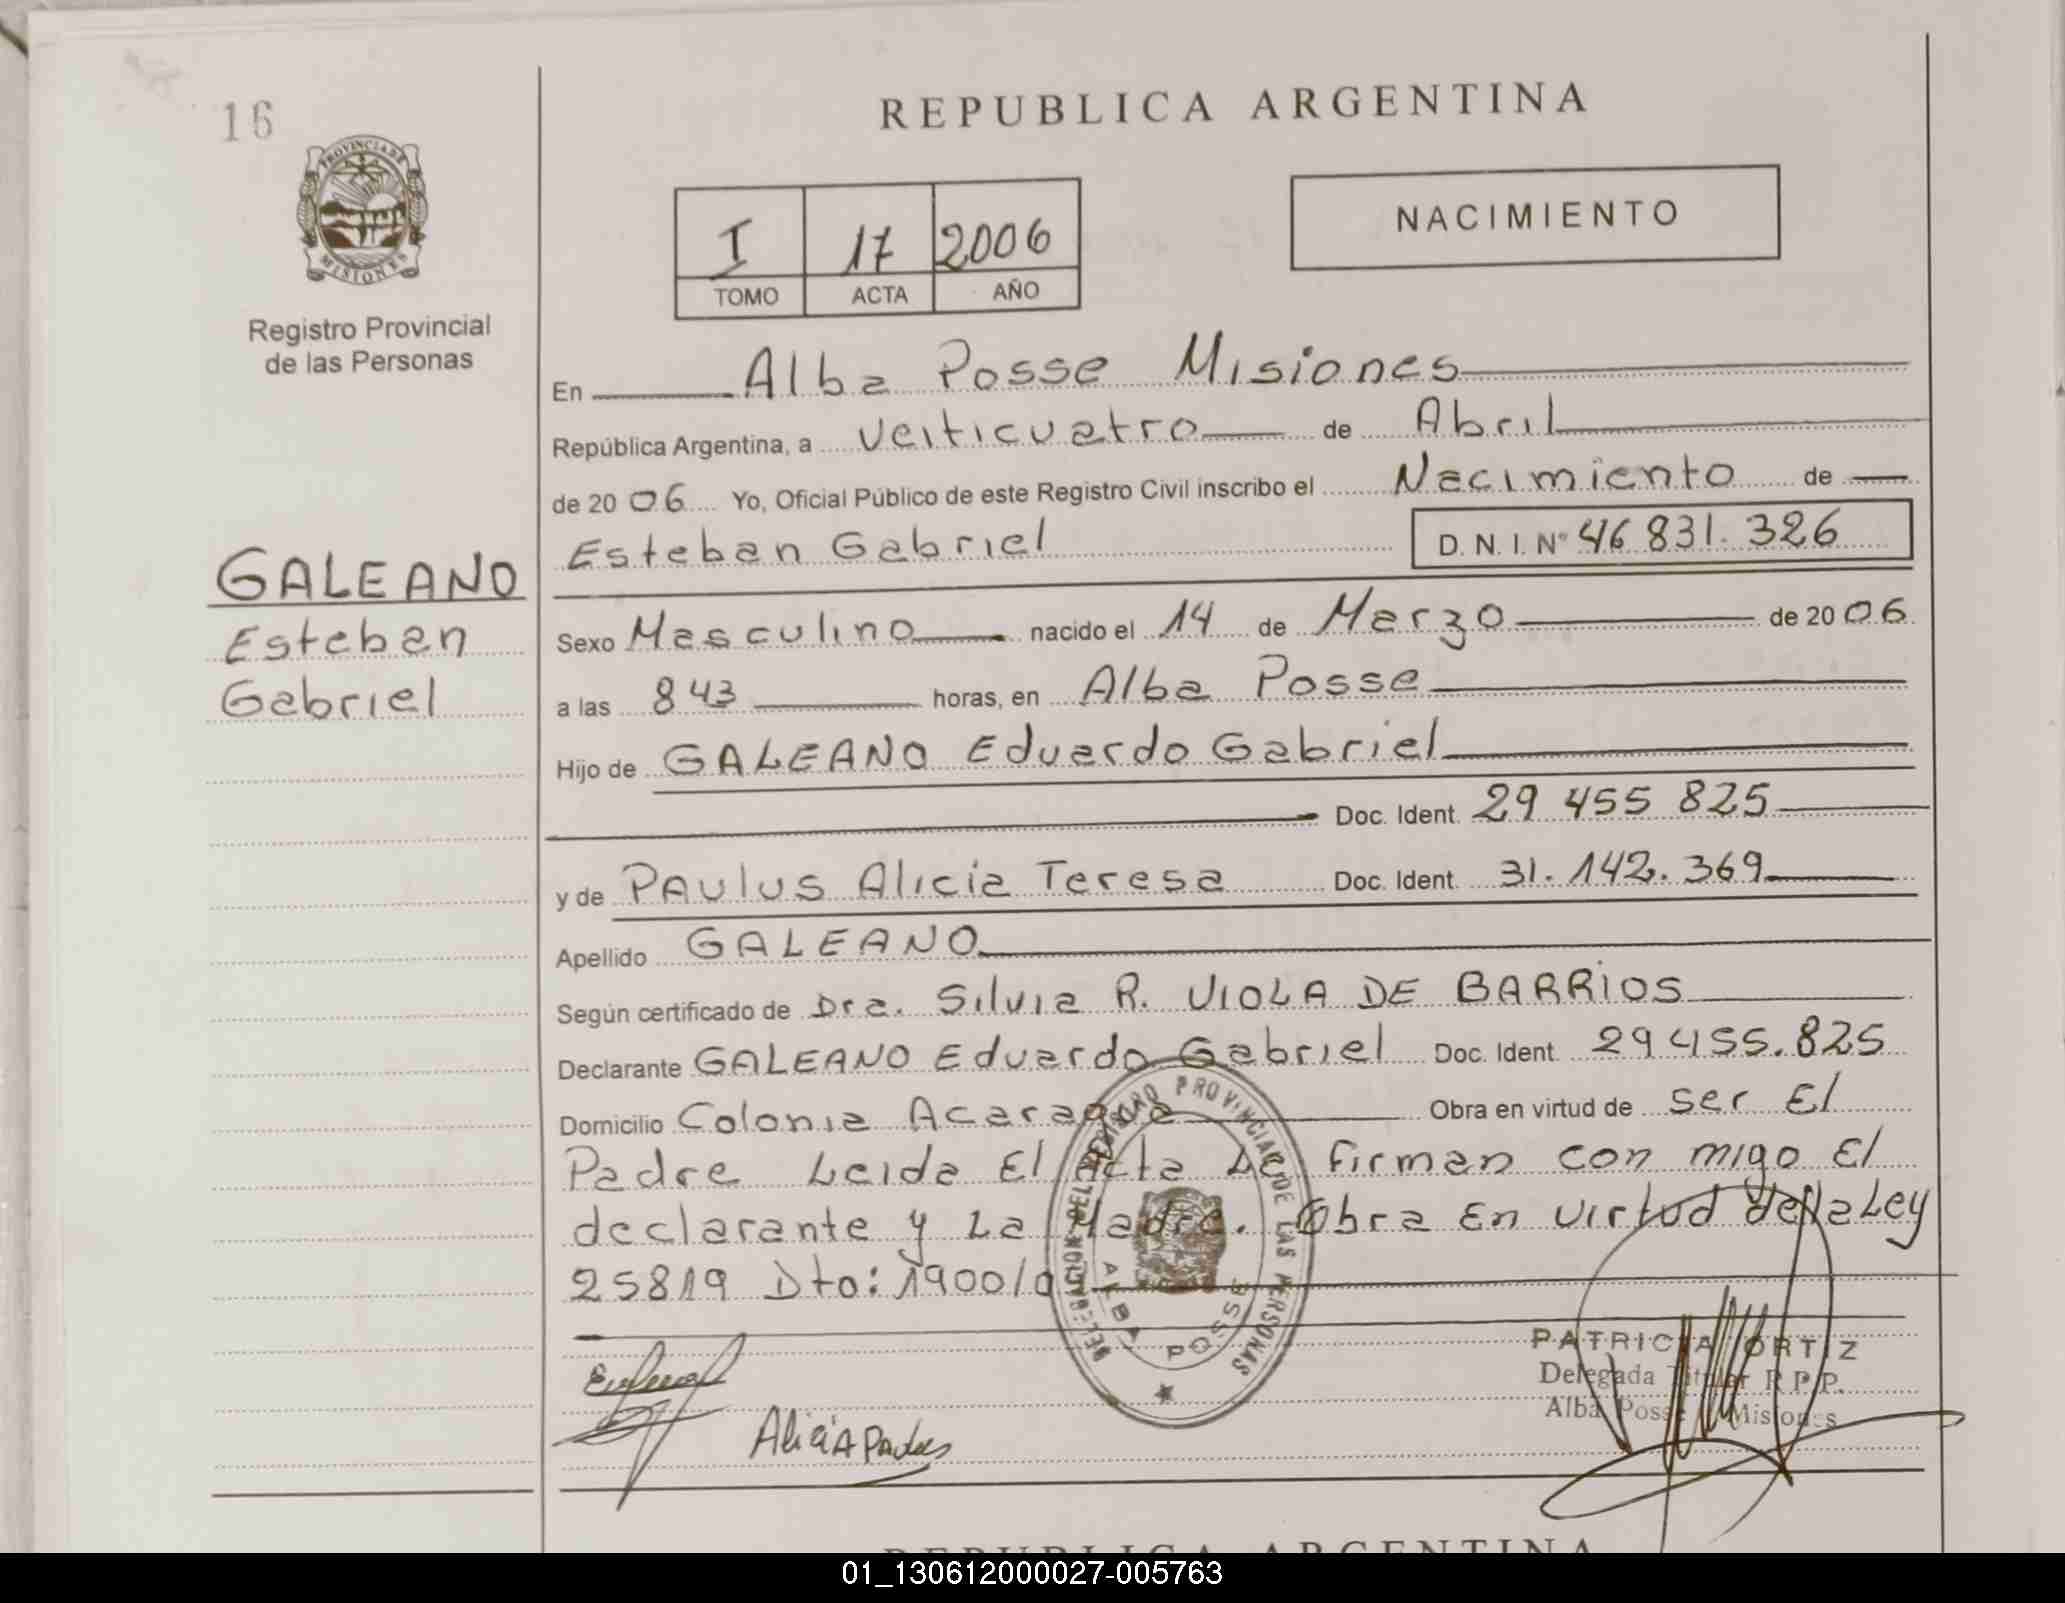 16
REPUBLICA ARGENTINA
PROVINCIA DE
MISIONES
Registro Provincial
de las Personas
I 17 2006
TOMO ACTA AÑO
NACIMIENTO
En Alba Posse Misiones
República Argentina, a Veiticuatro de Abril
de 20 06 Yo, Oficial Público de este Registro Civil inscribo el Nacimiento de
Esteban Gabriel D. N. I. N° 46 831. 326
GALEANO
Esteban
Gabriel
Sexo Masculino nacido el 14 de Marzo de 20 06
a las 8 43 horas, en Alba Posse
Hijo de GALEANO Eduardo Gabriel
Doc. Ident. 29 455 825
y de PAULUS Alicia Teresa Doc. Ident. 31. 142. 369
Apellido GALEANO
Según certificado de Dra. Silvia R. VIOLA DE BARRIOS
Declarante GALEANO Eduardo Gabriel Doc. Ident. 29 455.825
Domicilio Colonia Acaragua Obra en virtud de ser El
Padre Leida El Acta La firman con migo El
declarante y La Madre. Obra En virtud de la Ley
25819 Dto: 1900/0
DELEGACION DEL REGISTRO PROVINCIAL DE LAS PERSONAS
ALBA POSSE
Alicia Paulus
PATRICIA ORTIZ
Delegada Titular R.P.P.
Alba Posse Misiones
REPUBLICA ARGENTINA
01_130612000027-005763